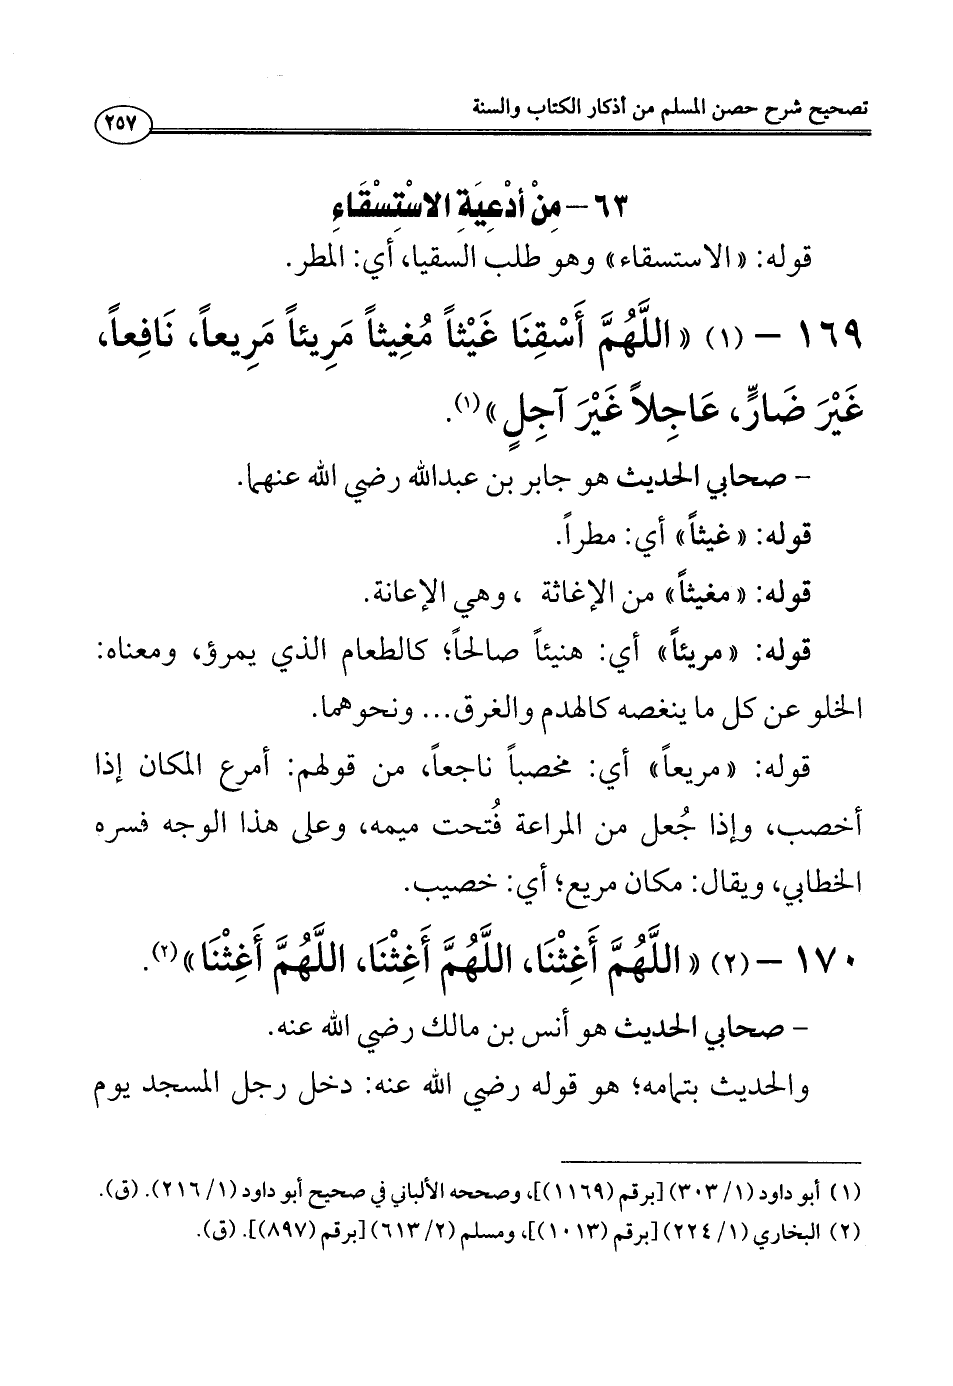 تصحيح شرح حصن المسلم من أذكار الكتاب والسنة
٢٥٧
٦٣ - مِنْ أدْعِيَةِ الاسْتِسْقَاءِ
قوله: «الاستسقاء» وهو طلب السقيا، أي: المطر.
١٦٩ - (١) «اللَّهُمَّ أَسْقِنَا غَيْثاً مُغِيثاً مَرِيئاً مَرِيعاً، نَافِعاً،
غَيْرَ ضَارٍّ، عَاجِلاً غَيْرَ آجِلٍ»(١).
- صحابي الحديث هو جابر بن عبدالله رضي الله عنهما.
قوله: «غيثاً» أي: مطراً.
قوله: «مغيثاً» من الإغاثة ، وهي الإعانة.
قوله: «مريئاً» أي: هنيئاً صالحاً؛ كالطعام الذي يمرؤ، ومعناه:
الخلو عن كل ما ينغصه كالهدم والغرق... ونحوهما.
قوله: «مريعاً» أي: مخصباً ناجعاً، من قولهم: أمرع المكان إذا
أخصب، وإذا جُعل من المراعة فُتحت ميمه، وعلى هذا الوجه فسره
الخطابي، ويقال: مكان مريع؛ أي: خصيب.
١٧٠ - (٢) «اللَّهُمَّ أَغِثْنَا، اللَّهُمَّ أَغِثْنَا، اللَّهُمَّ أَغِثْنَا»(٢).
- صحابي الحديث هو أنس بن مالك رضي الله عنه.
والحديث بتمامه؛ هو قوله رضي الله عنه: دخل رجل المسجد يوم
(١) أبو داود (١/ ٣٠٣) [برقم (١١٦٩)]، وصححه الألباني في صحيح أبو داود (١/ ٢١٦). (ق).
(٢) البخاري (١/ ٢٢٤) [برقم (١٠١٣)]، ومسلم (٢/ ٦١٣) [برقم (٨٩٧)]. (ق).